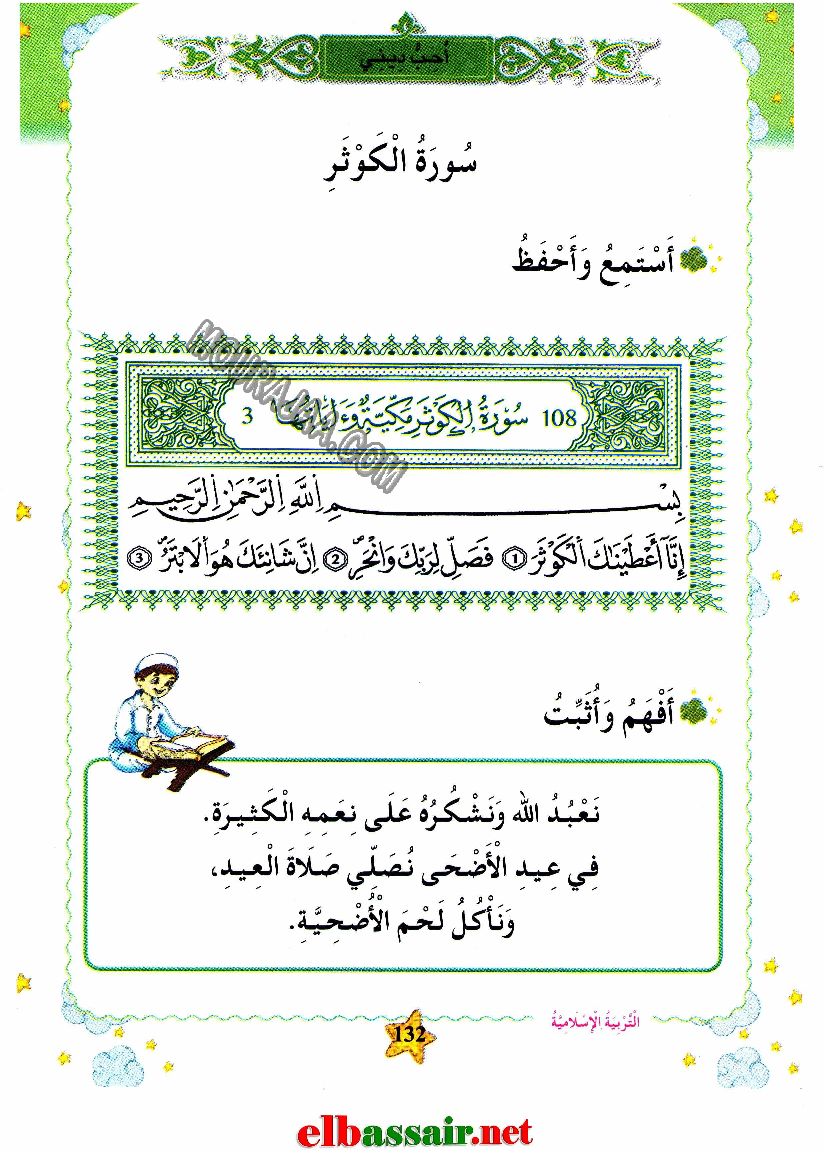 أحب ديني
سُورَةُ الْكَوْثَرِ
أَسْتَمِعُ وَأَحْفَظُ
108 سُورَةُ الْكَوْثَرِ مَكِّيَّةٌ وَءَايَاتُهَا 3
بِسْمِ اِللَّهِ اِلرَّحْمَٰنِ اِلرَّحِيمِ
إِنَّآ أَعْطَيْنَٰكَ اَلْكَوْثَرَ 1 فَصَلِّ لِرَبِّكَ وَانْحَرْ 2 إِنَّ شَانِئَكَ هُوَ اَلَابْتَرُ 3
MOURAJAA.COM
أَفْهَمُ وَأُثَبِّتُ
نَعْبُدُ الله وَنَشْكُرُهُ عَلَى نِعَمِهِ الْكَثِيرَةِ.
فِي عِيدِ الْأَضْحَى نُصَلِّي صَلَاةَ الْعِيدِ،
وَنَأْكُلُ لَحْمَ الْأُضْحِيَّةِ.
التَّرْبِيَةُ الْإِسْلَامِيَّةُ
132
elbassair.net